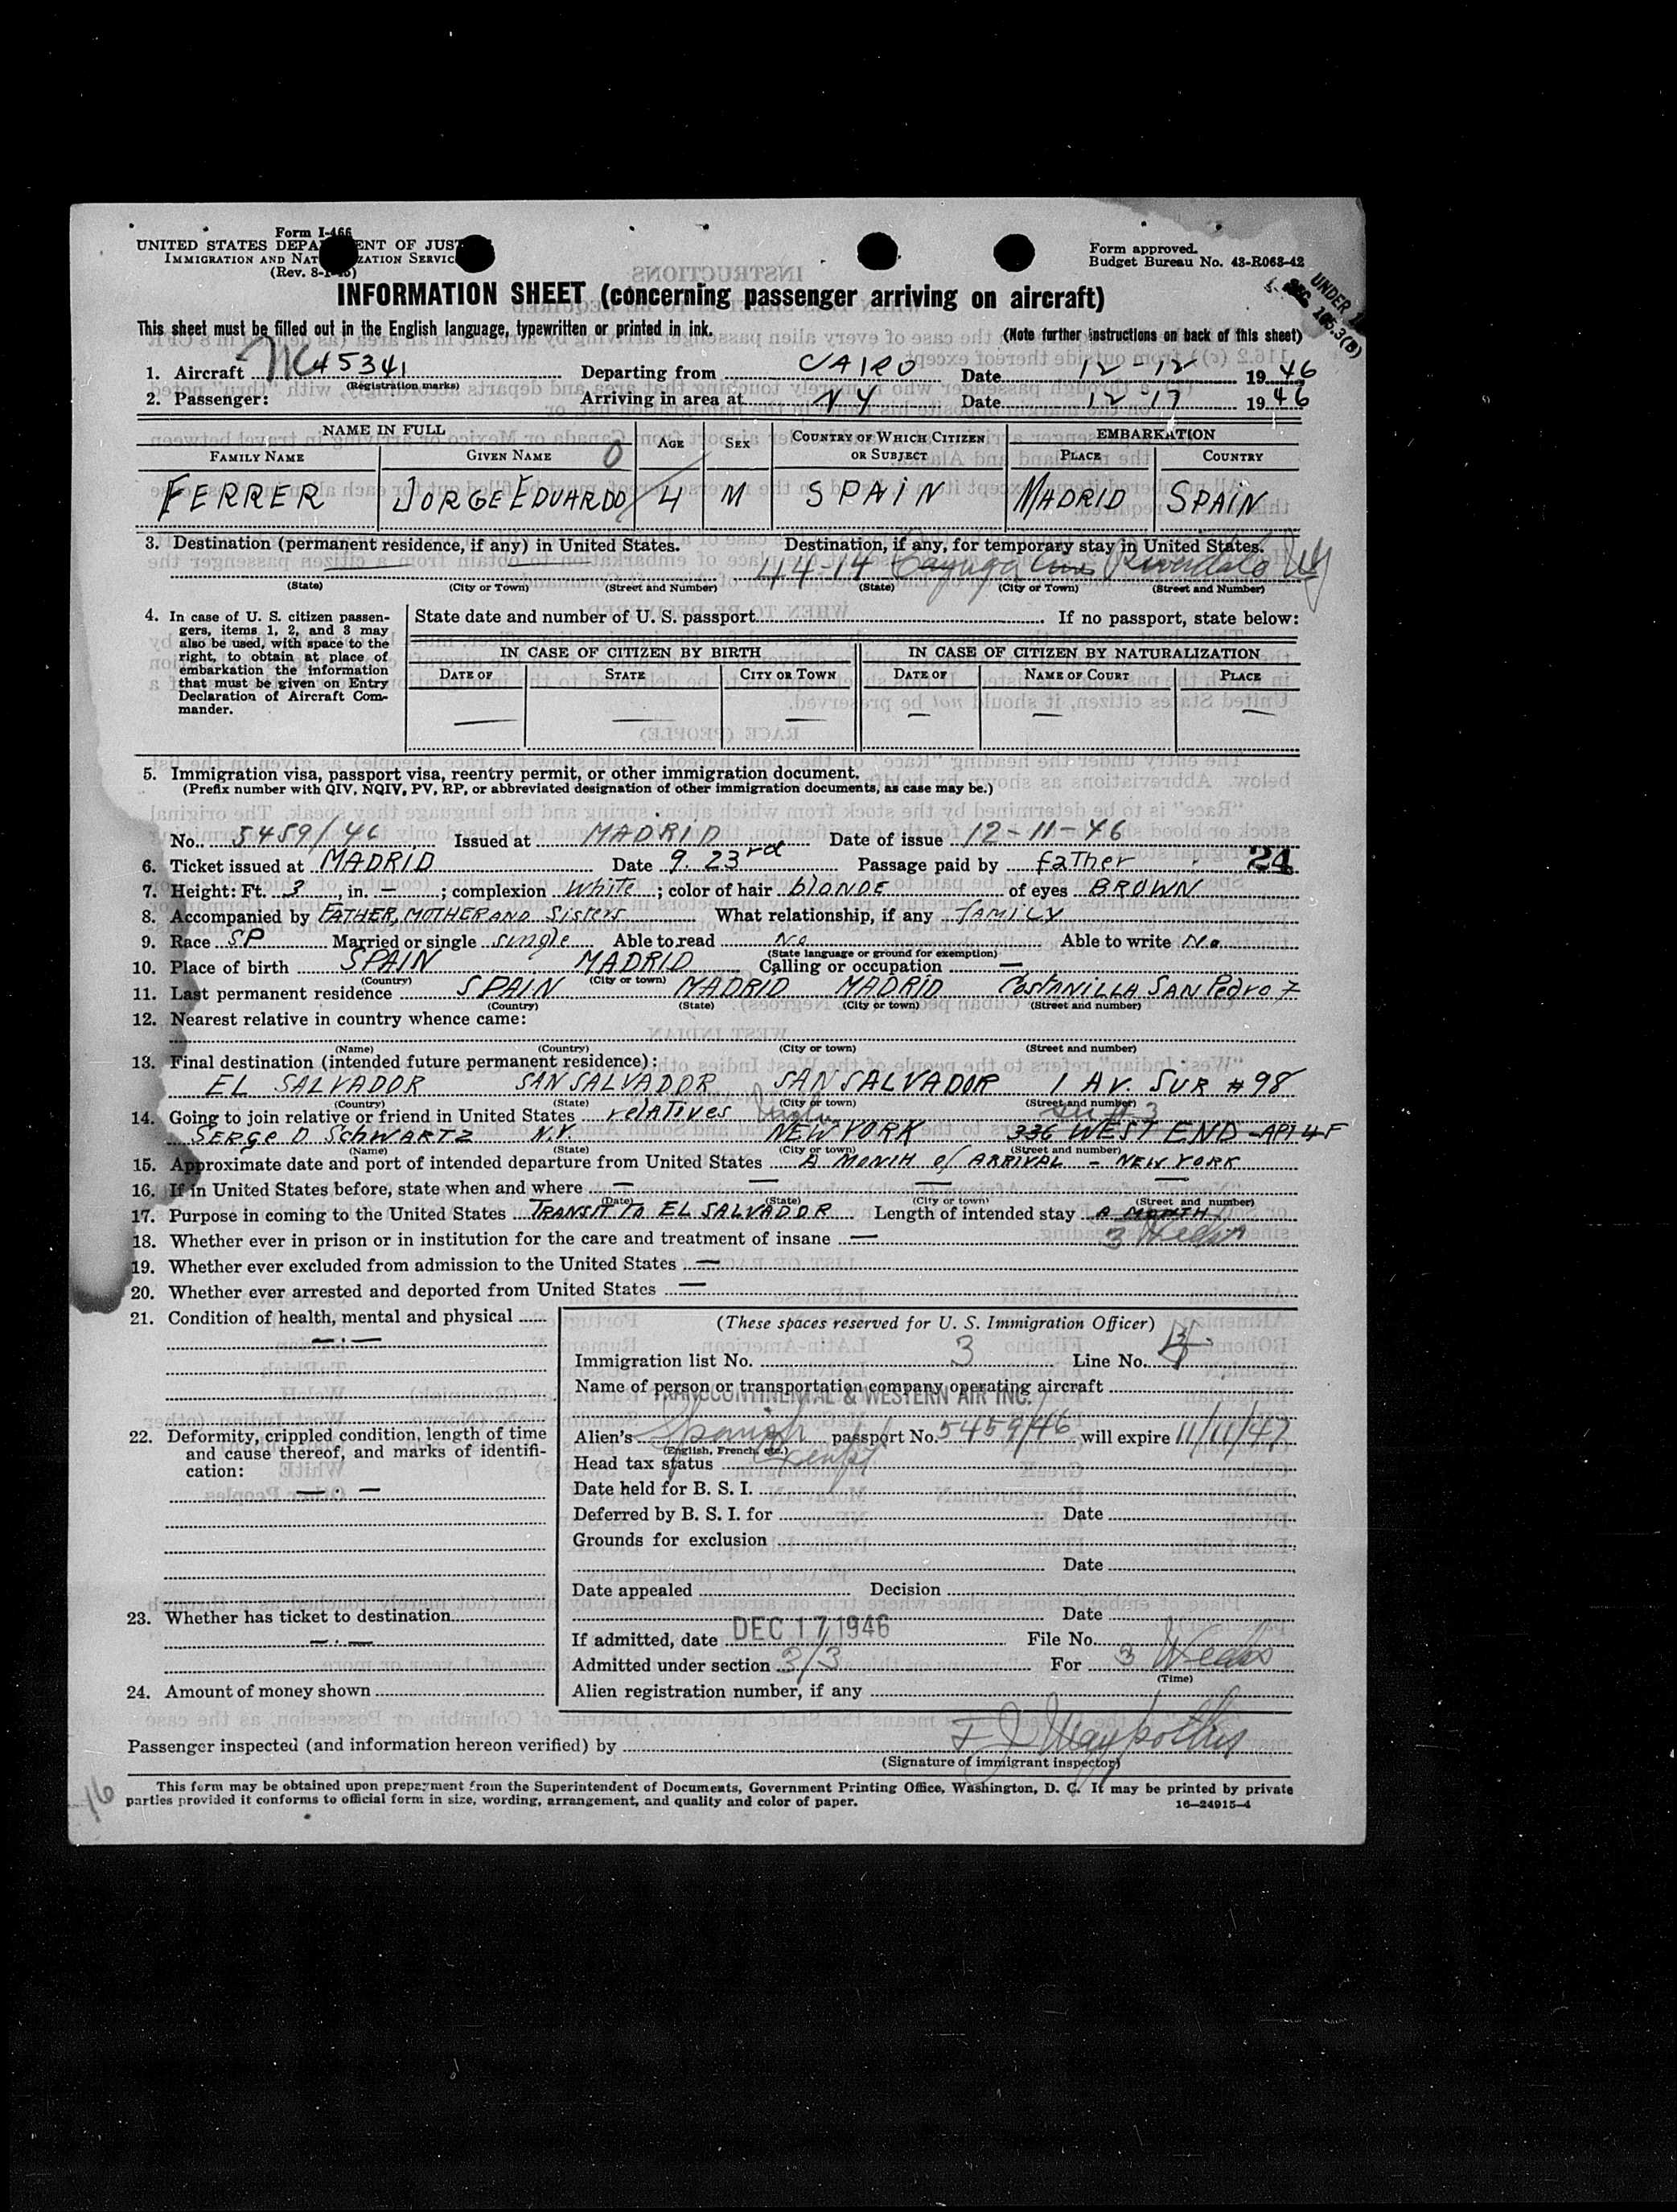 Form I-466
UNITED STATES DEPA ENT OF JUS
IMMIGRATION AND NAT ZATION SERVIC
(Rev. 8-1-45)
Form approved.
Budget Bureau No. 43-R068-42
UNDER
SEC 165.3(B)
INFORMATION SHEET (concerning passenger arriving on aircraft)
This sheet must be filled out in the English language, typewritten or printed in ink. (Note further instructions on back of this sheet)
1. Aircraft NC 45341 Departing from CAIRO Date 12-12 1946
(Registration marks)
2. Passenger: Arriving in area at NY Date 12-17 1946
NAME IN FULL AGE SEX COUNTRY OF WHICH CITIZEN OR SUBJECT EMBARKATION
FAMILY NAME GIVEN NAME 0 PLACE COUNTRY
FERRER JORGE EDUARDO 4 M SPAIN MADRID SPAIN
3. Destination (permanent residence, if any) in United States. Destination, if any, for temporary stay in United States.
44-14 Cayuga Ave Riverdale NY
(State) (City or Town) (Street and Number) (State) (City or Town) (Street and Number)
4. In case of U. S. citizen passengers, items 1, 2, and 3 may also be used, with space to the right, to obtain at place of embarkation the information that must be given on Entry Declaration of Aircraft Commander.
State date and number of U. S. passport If no passport, state below:
IN CASE OF CITIZEN BY BIRTH IN CASE OF CITIZEN BY NATURALIZATION
DATE OF STATE CITY OR TOWN DATE OF NAME OF COURT PLACE
— — — — — —
5. Immigration visa, passport visa, reentry permit, or other immigration document.
(Prefix number with QIV, NQIV, PV, RP, or abbreviated designation of other immigration documents, as case may be.)
No. 5459/46 Issued at MADRID Date of issue 12-11-46
6. Ticket issued at MADRID Date 9. 23rd Passage paid by father 24
7. Height: Ft. 3, in. —; complexion white; color of hair blONDE of eyes BROWN
8. Accompanied by FATHER, MOTHER AND Sisters What relationship, if any family
9. Race SP Married or single single Able to read No Able to write No
(State language or ground for exemption)
10. Place of birth SPAIN MADRID Calling or occupation —
(Country) (City or town)
11. Last permanent residence SPAIN MADRID MADRID Costanilla San Pedro 7
(Country) (State) (City or town) (Street and number)
12. Nearest relative in country whence came:
(Name) (Country) (City or town) (Street and number)
13. Final destination (intended future permanent residence):
EL SALVADOR SAN SALVADOR SAN SALVADOR 1 AV. SUR #98
(Country) (State) (City or town) (Street and number)
14. Going to join relative or friend in United States relatives
SERGE D SCHWARTZ N.Y. NEW YORK 336 WEST END - APT 4F
(Name) (State) (City or town) (Street and number)
15. Approximate date and port of intended departure from United States A MONTH of ARRIVAL - NEW YORK
16. If in United States before, state when and where — — — —
(Date) (State) (City or town) (Street and number)
17. Purpose in coming to the United States TRANSIT TO EL SALVADOR Length of intended stay A MONTH
3 Weeks
18. Whether ever in prison or in institution for the care and treatment of insane —
19. Whether ever excluded from admission to the United States —
20. Whether ever arrested and deported from United States —
21. Condition of health, mental and physical
— . —
22. Deformity, crippled condition, length of time and cause thereof, and marks of identification:
— . —
23. Whether has ticket to destination
— . —
24. Amount of money shown
(These spaces reserved for U. S. Immigration Officer)
Immigration list No. 3 Line No.
Name of person or transportation company operating aircraft
TRANSCONTINENTAL & WESTERN AIR INC.
Alien's Spanish passport No. 5459/46 will expire 11/11/47
(English, French, etc.)
Head tax status Exempt
Date held for B. S. I.
Deferred by B. S. I. for Date
Grounds for exclusion
Date
Date appealed Decision
Date
If admitted, date DEC 17 1946 File No.
Admitted under section 3/3 For 3 Weeks
(Time)
Alien registration number, if any
Passenger inspected (and information hereon verified) by
(Signature of immigrant inspector)
This form may be obtained upon prepayment from the Superintendent of Documents, Government Printing Office, Washington, D. C. It may be printed by private
parties provided it conforms to official form in size, wording, arrangement, and quality and color of paper. 16—24915-4